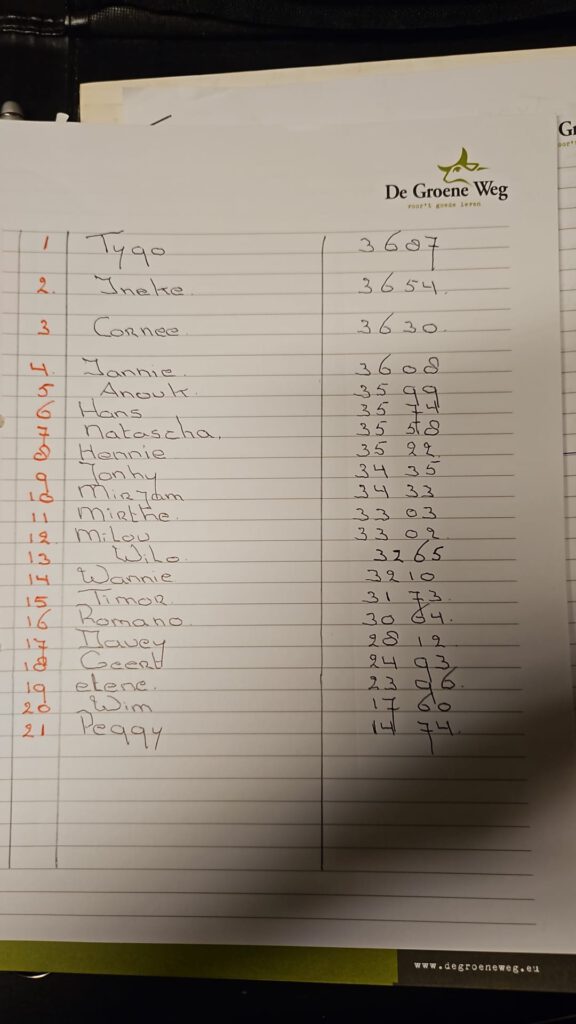 Gr
De Groene Weg
voor't goede leven
1 Tygo 3687
2. Ineke 3654.
3 Cornee 3630.
4. Jannie. 3608
5 Anouk. 3599
6 Hans 3574
7 Natascha. 3558
8 Hennie 3522
9 Jonhy 3435
10 Mirjam 3433
11 Mirthe. 3303
12. Milou 3302.
13 Wilo. 3265
14 Wannie 3210
15 Timor. 3173.
16 Romano. 3064.
17 Davey 2812.
18 Geert 2493.
19 etene. 2396.
20 Wim 1760
21 Peggy 1474.
www.degroeneweg.eu